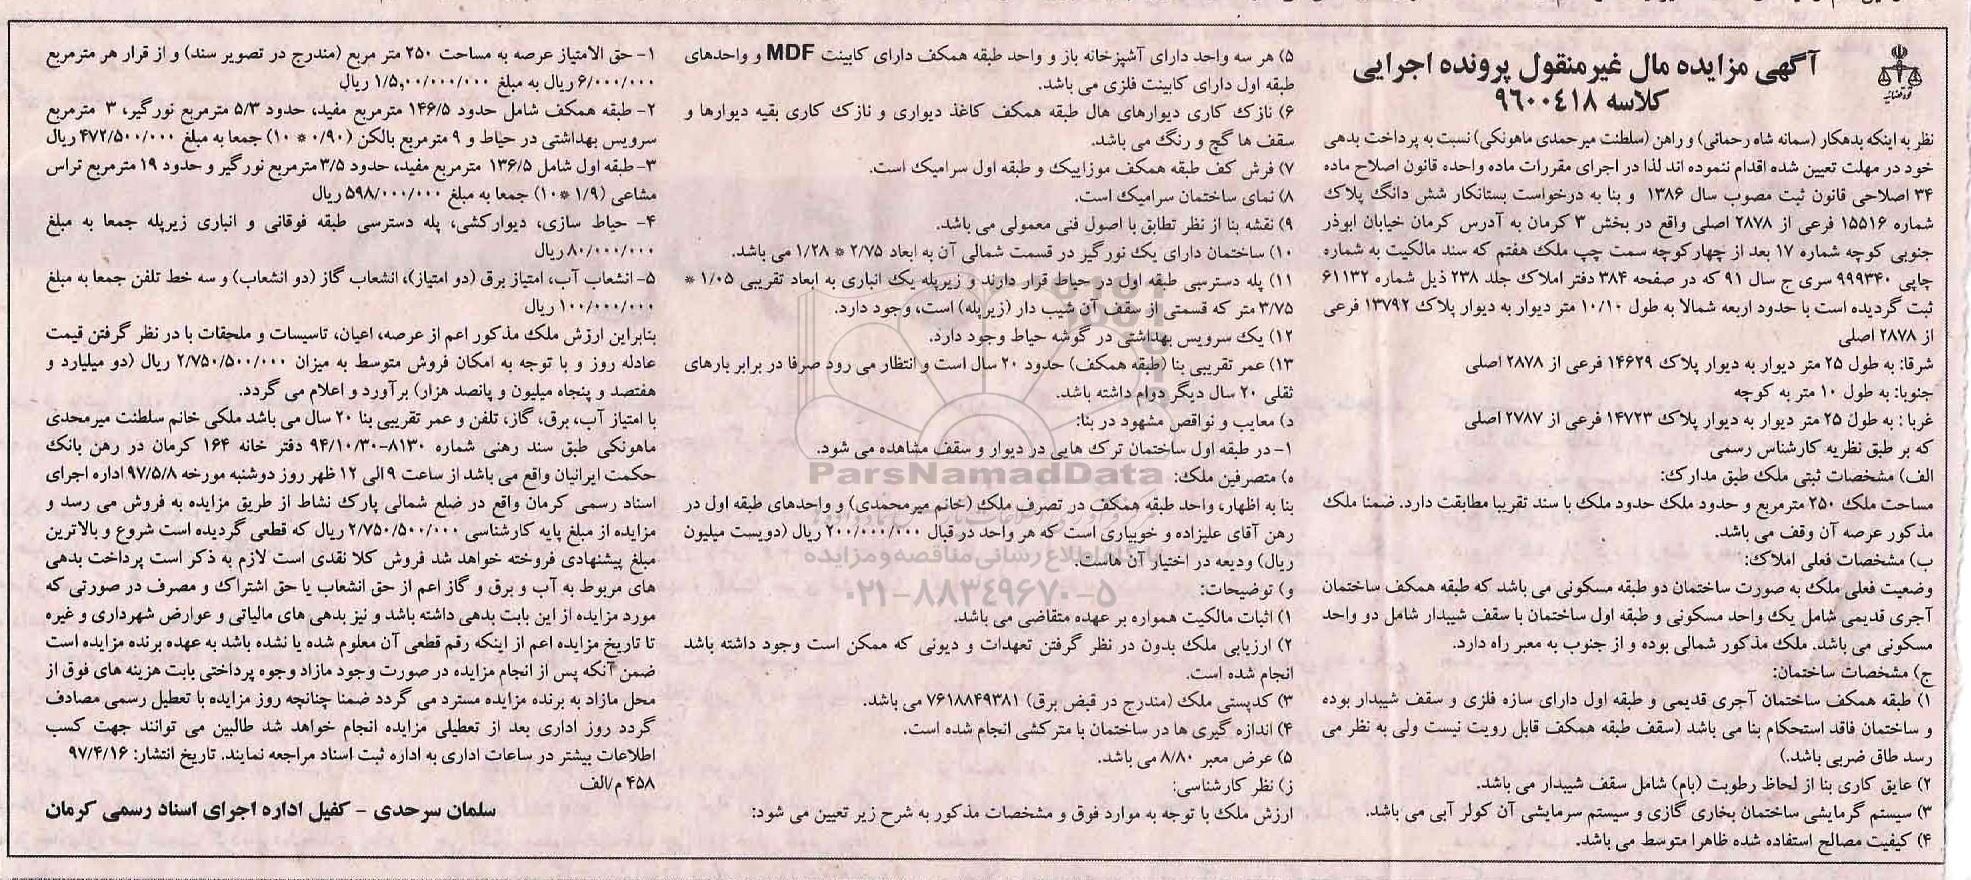 آگهی مزایده مال غیرمنقول پرونده اجرایی
کلاسه ۹۶۰۰۴۱۸
نظر به اینکه بدهکار (سمانه شاه رحمانی) و راهن (سلطنت میرحمدی ماهونکی) نسبت به پرداخت بدهی
خود در مهلت تعیین شده اقدام ننموده اند لذا در اجرای مقررات ماده واحده قانون اصلاح ماده
۳۴ اصلاحی قانون ثبت مصوب سال ۱۳۸۶ و بنا به درخواست بستانکار شش دانگ پلاک
شماره ۱۵۵۱۶ فرعی از ۲۸۷۸ اصلی واقع در بخش ۳ کرمان به آدرس کرمان خیابان ابوذر
جنوبی کوچه شماره ۱۷ بعد از چهارکوچه سمت چپ ملک هفتم که سند مالکیت به شماره
چاپی ۹۹۹۳۴۰ سری ج سال ۹۱ که در صفحه ۳۸۴ دفتر املاک جلد ۲۳۸ ذیل شماره ۶۱۱۳۲
ثبت گردیده است با حدود اربعه شمالا به طول ۱۰/۱۰ متر دیوار به دیوار پلاک ۱۳۷۹۲ فرعی
از ۲۸۷۸ اصلی
شرقا: به طول ۲۵ متر دیوار به دیوار پلاک ۱۴۶۲۹ فرعی از ۲۸۷۸ اصلی
جنوبا: به طول ۱۰ متر به کوچه
غربا: به طول ۲۵ متر دیوار به دیوار پلاک ۱۴۷۲۳ فرعی از ۲۷۸۷ اصلی
که بر طبق نظریه کارشناس رسمی
الف) مشخصات ثبتی ملک طبق مدارک:
مساحت ملک ۲۵۰ مترمربع و حدود ملک حدود ملک با سند تقریبا مطابقت دارد. ضمنا ملک
مذکور عرصه آن وقف می باشد.
ب) مشخصات فعلی املاک:
وضعیت فعلی ملک به صورت ساختمان دو طبقه مسکونی می باشد که طبقه همکف ساختمان
آجری قدیمی شامل یک واحد مسکونی و طبقه اول ساختمان با سقف شیبدار شامل دو واحد
مسکونی می باشد. ملک مذکور شمالی بوده و از جنوب به معبر راه دارد.
ج) مشخصات ساختمان:
۱) طبقه همکف ساختمان آجری قدیمی و طبقه اول دارای سازه فلزی و سقف شیبدار بوده
و ساختمان فاقد استحکام بنا می باشد (سقف طبقه همکف قابل رویت نیست ولی به نظر می
رسد طاق ضربی باشد.)
۲) عایق کاری بنا از لحاظ رطوبت (بام) شامل سقف شیبدار می باشد.
۳) سیستم گرمایشی ساختمان بخاری گازی و سیستم سرمایشی آن کولر آبی می باشد.
۴) کیفیت مصالح استفاده شده ظاهرا متوسط می باشد.
۵) هر سه واحد دارای آشپزخانه باز و واحد طبقه همکف دارای کابینت MDF و واحدهای
طبقه اول دارای کابینت فلزی می باشد.
۶) نازک کاری دیوارهای هال طبقه همکف کاغذ دیواری و نازک کاری بقیه دیوارها و
سقف ها گچ و رنگ می باشد.
۷) فرش کف طبقه همکف موزاییک و طبقه اول سرامیک است.
۸) نمای ساختمان سرامیک است.
۹) نقشه بنا از نظر تطابق با اصول فنی معمولی می باشد.
۱۰) ساختمان دارای یک نورگیر در قسمت شمالی آن به ابعاد ۲/۷۵ * ۱/۲۸ می باشد.
۱۱) پله دسترسی طبقه اول در حیاط قرار دارند و زیرپله یک انباری به ابعاد تقریبی ۱/۰۵ *
۳/۷۵ متر که قسمتی از سقف آن شیب دار (زیرپله) است، وجود دارد.
۱۲) یک سرویس بهداشتی در گوشه حیاط وجود دارد.
۱۳) عمر تقریبی بنا (طبقه همکف) حدود ۲۰ سال است و انتظار می رود صرفا در برابر بارهای
ثقلی ۲۰ سال دیگر دوام داشته باشد.
د) معایب و نواقص مشهود در بنا:
۱- در طبقه اول ساختمان ترک هایی در دیوار و سقف مشاهده می شود.
ه) متصرفین ملک:
بنا به اظهار، واحد طبقه همکف در تصرف ملک (خانم میرمحمدی) و واحدهای طبقه اول در
رهن آقای علیزاده و خوبیاری است که هر واحد در قبال ۲۰۰/۰۰۰/۰۰۰ ریال (دویست میلیون
ریال) ودیعه در اختیار آن هاست.
و) توضیحات:
۱) اثبات مالکیت همواره بر عهده متقاضی می باشد.
۲) ارزیابی ملک بدون در نظر گرفتن تعهدات و دیونی که ممکن است وجود داشته باشد
انجام شده است.
۳) کدپستی ملک (مندرج در قبض برق) ۷۶۱۸۸۴۹۳۸۱ می باشد.
۴) اندازه گیری ها در ساختمان با مترکشی انجام شده است.
۵) عرض معبر ۸/۸۰ می باشد.
ز) نظر کارشناسی:
ارزش ملک با توجه به موارد فوق و مشخصات مذکور به شرح زیر تعیین می شود:
۱- حق الامتیاز عرصه به مساحت ۲۵۰ متر مربع (مندرج در تصویر سند) و از قرار هر مترمربع
۶/۰۰۰/۰۰۰ ریال به مبلغ ۱/۵۰۰/۰۰۰/۰۰۰ ریال
۲- طبقه همکف شامل حدود ۱۴۶/۵ مترمربع مفید، حدود ۵/۳ مترمربع نورگیر، ۳ مترمربع
سرویس بهداشتی در حیاط و ۹ مترمربع بالکن (۰/۹۰ * ۱۰) جمعا به مبلغ ۴۷۲/۵۰۰/۰۰۰ ریال
۳- طبقه اول شامل ۱۳۶/۵ مترمربع مفید، حدود ۳/۵ مترمربع نورگیر و حدود ۱۹ مترمربع تراس
مشاعی (۱/۹ * ۱۰) جمعا به مبلغ ۵۹۸/۰۰۰/۰۰۰ ریال
۴- حیاط سازی، دیوارکشی، پله دسترسی طبقه فوقانی و انباری زیرپله جمعا به مبلغ
۸۰/۰۰۰/۰۰۰ ریال
۵- انشعاب آب، امتیاز برق (دو امتیاز)، انشعاب گاز (دو انشعاب) و سه خط تلفن جمعا به مبلغ
۱۰۰/۰۰۰/۰۰۰ ریال
بنابراین ارزش ملک مذکور اعم از عرصه، اعیان، تاسیسات و ملحقات با در نظر گرفتن قیمت
عادله روز و با توجه به امکان فروش متوسط به میزان ۲/۷۵۰/۵۰۰/۰۰۰ ریال (دو میلیارد و
هفتصد و پنجاه میلیون و پانصد هزار) برآورد و اعلام می گردد.
با امتیاز آب، برق، گاز، تلفن و عمر تقریبی بنا ۲۰ سال می باشد ملکی خانم سلطنت میرمحمدی
ماهونکی طبق سند رهنی شماره ۸۱۳۰-۹۴/۱۰/۳۰ دفتر خانه ۱۶۴ کرمان در رهن بانک
حکمت ایرانیان واقع می باشد از ساعت ۹ الی ۱۲ ظهر روز دوشنبه مورخه ۹۷/۵/۸ اداره اجرای
اسناد رسمی کرمان واقع در ضلع شمالی پارک نشاط از طریق مزایده به فروش می رسد و
مزایده از مبلغ پایه کارشناسی ۲/۷۵۰/۵۰۰/۰۰۰ ریال که قطعی گردیده است شروع و بالاترین
مبلغ پیشنهادی فروخته خواهد شد فروش کلا نقدی است لازم به ذکر است پرداخت بدهی
های مربوط به آب و برق و گاز اعم از حق انشعاب یا حق اشتراک و مصرف در صورتی که
مورد مزایده از این بابت بدهی داشته باشد و نیز بدهی های مالیاتی و عوارض شهرداری و غیره
تا تاریخ مزایده اعم از اینکه رقم قطعی آن معلوم شده یا نشده باشد به عهده برنده مزایده است
ضمن آنکه پس از انجام مزایده در صورت وجود مازاد وجوه پرداختی بابت هزینه های فوق از
محل مازاد به برنده مزایده مسترد می گردد ضمنا چنانچه روز مزایده با تعطیل رسمی مصادف
گردد روز اداری بعد از تعطیلی مزایده انجام خواهد شد طالبین می توانند جهت کسب
اطلاعات بیشتر در ساعات اداری به اداره ثبت اسناد مراجعه نمایند. تاریخ انتشار: ۹۷/۴/۱۶
۴۵۸ م/الف
سلمان سرحدی - کفیل اداره اجرای اسناد رسمی کرمان
ParsNamadData
پایگاه اطلاع رسانی مناقصه و مزایده
۰۲۱-۸۸۳۴۹۶۷۰-۵